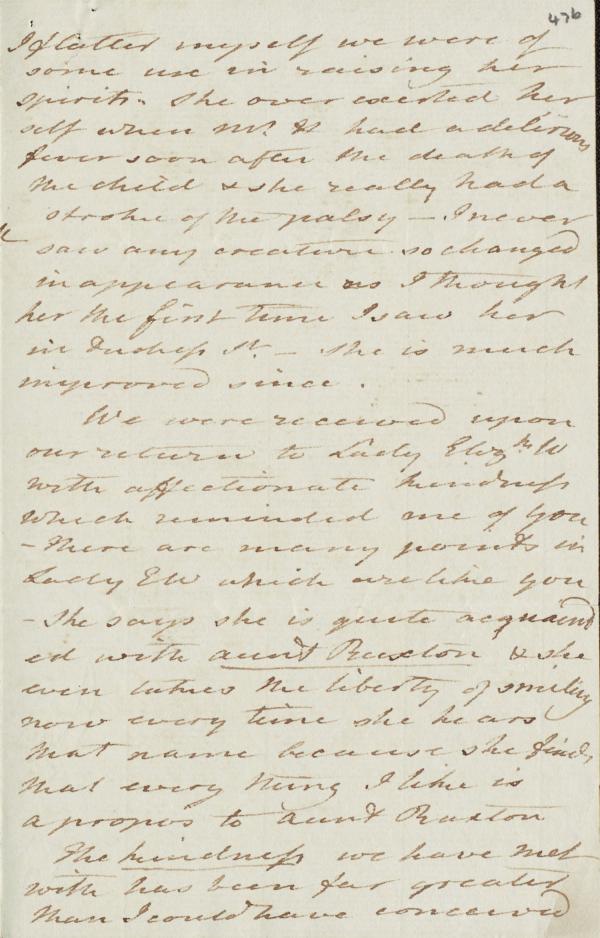 476
I flatter myself we were of
some use in raising her
spirits. She over exerted her
self when Mr. H had a delirious
fever soon after the death of
the child & she really had a
stroke of the palsy – I never
saw any creature so changed
in appearance as I thought
her the first time I saw her
in Duchess St. – She is much
improved since.
We were received upon
our return to Lady Elizth W
with affectionate kindness
which reminded me of you
– There are many points in
Lady EW which are like you
– She says she is quite acquaint
ed with aunt Ruxton & she
even takes the liberty of smiling
now every time she hears
that name because she finds
that every thing I like is
a propos to aunt Ruxton
The kindness we have met
with has been far greater
than I could have conceived